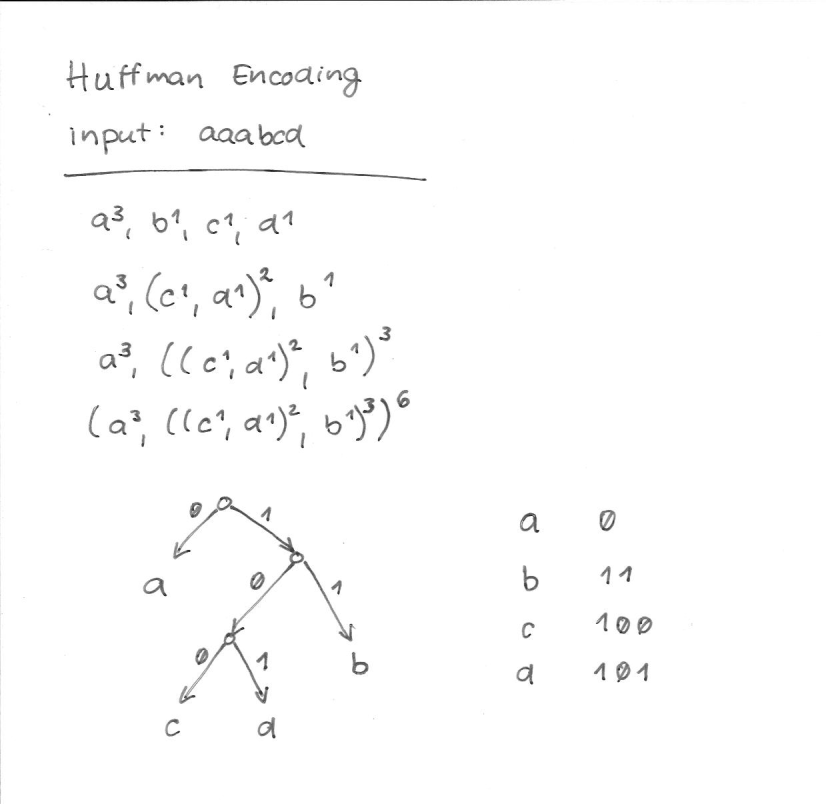 Huffman Encoding
input: aaabcd
a³, b¹, c¹, d¹
a³, (c¹, d¹)², b¹
a³, ((c¹, d¹)², b¹)³
(a³, ((c¹, d¹)², b¹)³)⁶
0 1
a
0 1
0 1
b
c d
a 0
b 11
c 100
d 101